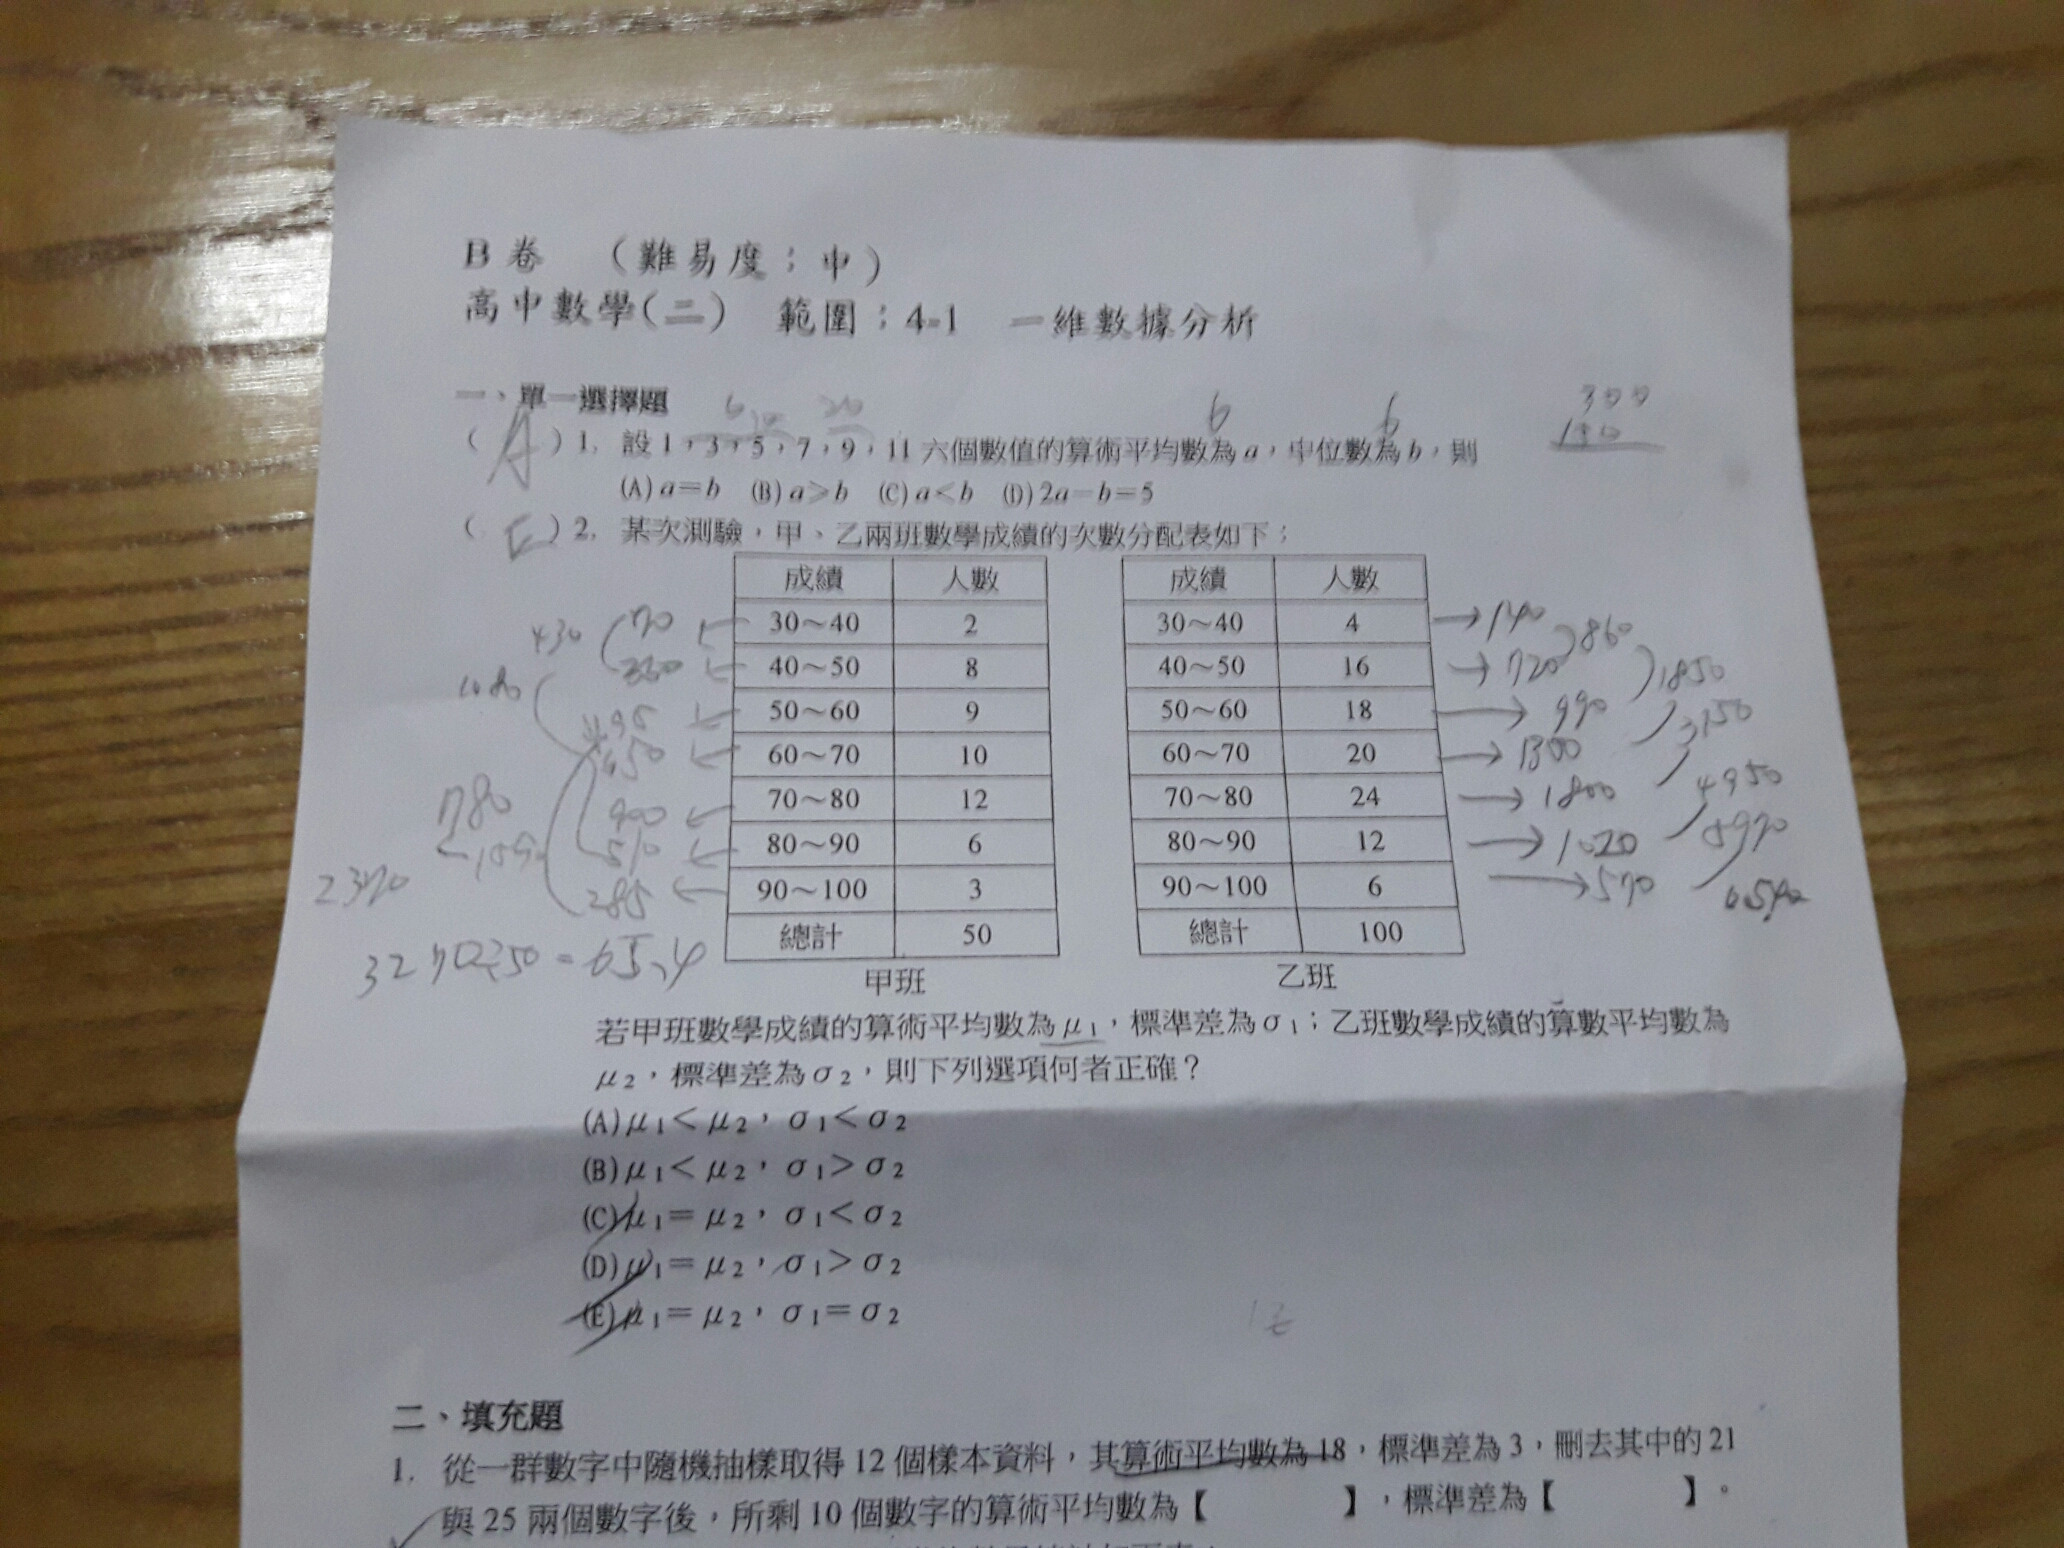 B卷 （難易度：中）
高中數學(二) 範圍：4-1 一維數據分析
一、單一選擇題
6 10 20 6 6 300
( A ) 1. 設1，3，5，7，9，11六個數值的算術平均數為a，中位數為b，則
(A) a＝b (B) a＞b (C) a＜b (D) 2a－b＝5
( E ) 2. 某次測驗，甲、乙兩班數學成績的次數分配表如下：
成績 人數
30～40 2
40～50 8
50～60 9
60～70 10
70～80 12
80～90 6
90～100 3
總計 50
甲班
成績 人數
30～40 4
40～50 16
50～60 18
60～70 20
70～80 24
80～90 12
90～100 6
總計 100
乙班
430 70
360
495
650
780 900
1590 510
2370 285
3270÷50=65.4
→140 860
→720 1850
→990 3150
→1300
→1800 4950
→1020 5970
→570 6540
若甲班數學成績的算術平均數為μ1，標準差為σ1；乙班數學成績的算數平均數為
μ2，標準差為σ2，則下列選項何者正確？
(A) μ1＜μ2，σ1＜σ2
(B) μ1＜μ2，σ1＞σ2
(C) μ1＝μ2，σ1＜σ2
(D) μ1＝μ2，σ1＞σ2
(E) μ1＝μ2，σ1＝σ2
二、填充題
1. 從一群數字中隨機抽樣取得12個樣本資料，其算術平均數為18，標準差為3，刪去其中的21
與25兩個數字後，所剩10個數字的算術平均數為【 】，標準差為【 】。